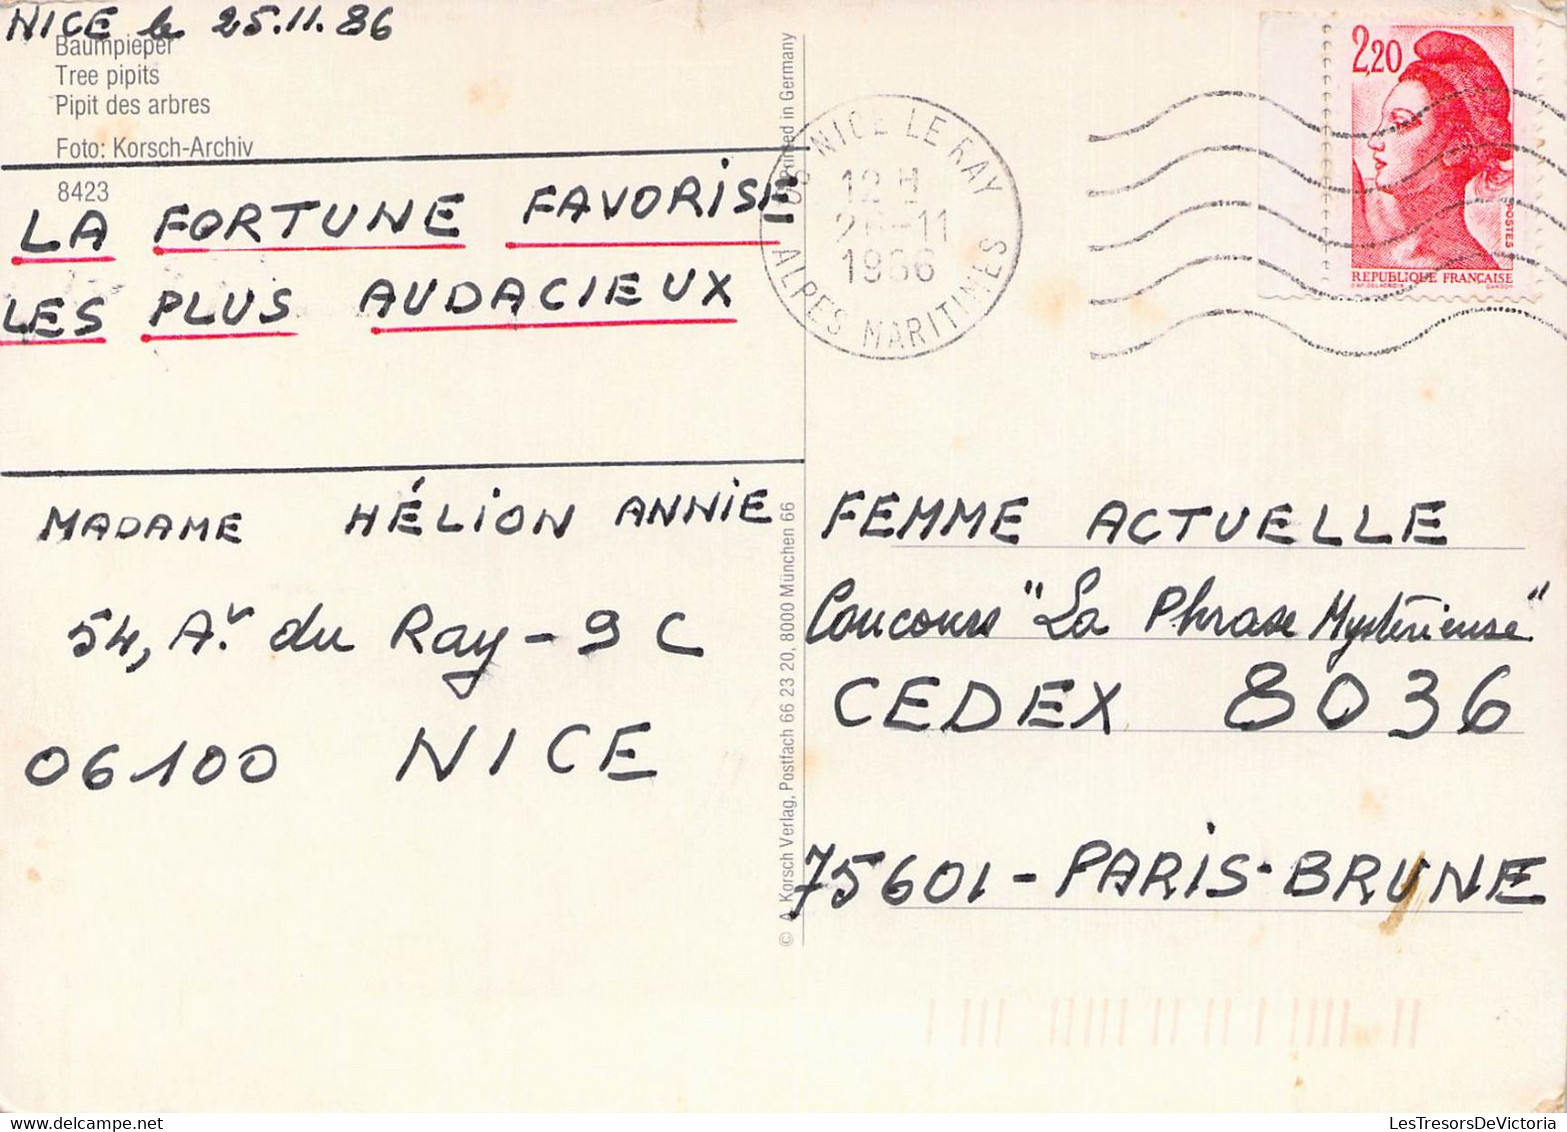 NICE le 25.11.86
Baumpieper
Tree pipits
Pipit des arbres
Foto: Korsch-Archiv
8423
LA FORTUNE FAVORISE
LES PLUS AUDACIEUX
MADAME HÉLION ANNIE
54, Av. du Ray - 9 C
06100 NICE
© A. Korsch Verlag, Postfach 66 23 20, 8000 München 66
Printed in Germany
NICE LE RAY
12 H
26-11
1986
ALPES MARITIMES
2,20
POSTES
REPUBLIQUE FRANÇAISE
FEMME ACTUELLE
Concours "La Phrase Mystérieuse"
CEDEX 8036
75601 - PARIS-BRUNE
LesTresorsDeVictoria